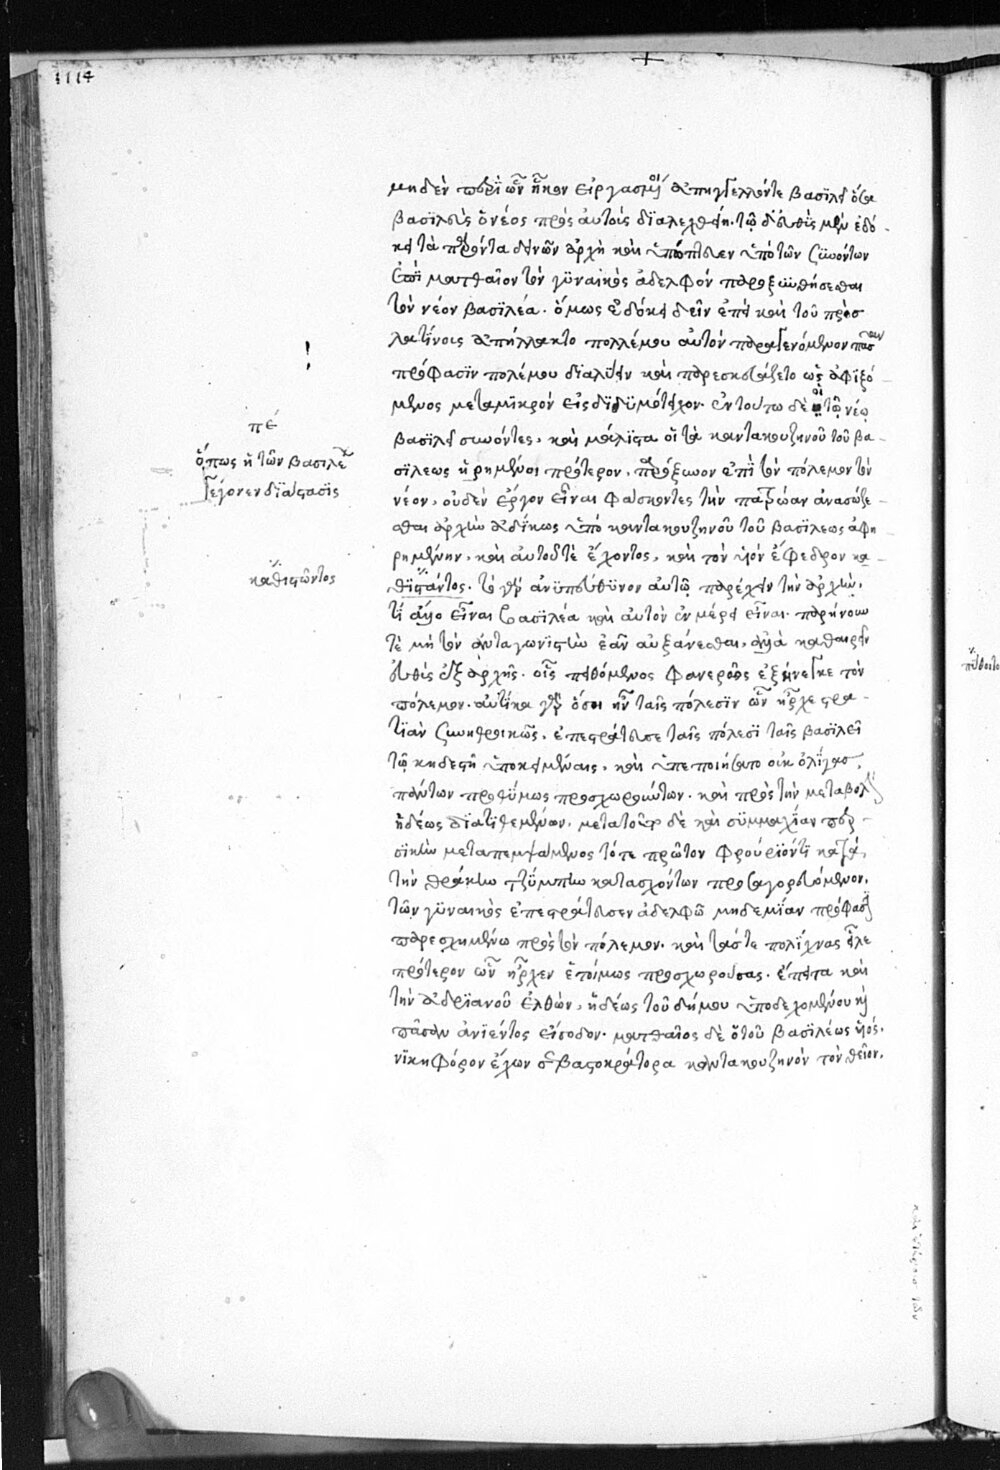 1114
μηδὲν περὶ ὧν ἧκον εἰργασμένοι ἀπήγγελλόν τε βασιλεῖ ὅσα
βασιλεὺς ὁ νέος πρὸς αὐτοὺς διαλεχθείη. τῷ δ' εὐθὺς μὲν ἐδό-
κει τὰ παρόντα δεινῶν ἀρχὴ καὶ ὑπώπτευεν ὑπὸ τῶν συνόντων
ἐπὶ ματθαῖον τὸν γυναικὸς ἀδελφὸν παροξυνθήσεσθαι
τὸν νέον βασιλέα. ὅμως ἐδόκει δεῖν ἐπεὶ καὶ τοῦ πρὸς
λατίνους ἀπήλλακτο πολλέμου αὐτὸν παραγενόμενον πᾶσαν
πρόφασιν πολέμου διαλύειν καὶ παρεσκευάζετο ὡς ἀφιξό-
μενος μεταμικρὸν εἰς διδυμότειχον. ἐν τούτω δὲ οἱ τῷ νέῳ
πέ
βασιλεῖ συνόντες, καὶ μάλιστα οἳ τὰ καντακουζηνοῦ τοῦ βα-
ὅπως ἡ τῶν βασιλέων
σιλέως ᾕρημένοι πρότερον, παρώξυνον ἐπὶ τὸν πόλεμον τὸν
γέγονεν διάστασις
νέον, οὐδὲν ἔργον εἶναι φάσκοντες τὴν πατρώαν ἀνασώζε-
σθαι ἀρχὴν ἀδίκως ὑπὸ καντακουζηνοῦ τοῦ βασιλέως ἀφη-
ρημένην, καὶ αὐτοῦ τὲ ἔχοντος, καὶ τὸν υἱὸν ἔφεδρον κα-
καθιστῶντος
θιστάντος. τὸ γὰρ ἀνυπεύθυνον αὐτῷ παρέχειν τὴν ἀρχὴν,
τί ἄλλο εἶναι βασιλέα καὶ αὐτὸν ἐν μέρει εἶναι. παρήνουν
τὲ μὴ τὸν ἀνταγωνιστὴν ἐᾶν αὐξάνεσθαι, ἀλλὰ καθαιρεῖν
εὐθὺς ἐξ ἀρχῆς. οἷς πειθόμενος φανερῶς ἐξήνεγκε τὸν
πόλεμον. αὐτίκα γὰρ ὅσοι ἦν ταῖς πόλεσιν ὧν ἦρχε στρα-
τιὰν συνηθροικὼς, ἐπεστράτευσε ταῖς πόλεσι ταῖς βασιλεῖ
τῷ κηδεστῇ ὑποκειμέναις, καὶ ὑπεποιήσατο οὐκ ὀλίγας,
πάντων προθύμως προσχωρούντων. καὶ πρὸς τὴν μεταβολὴν
ἡδέως διατιθεμένων. μετατοῦτο δὲ καὶ συμμαχίαν περ-
σικὴν μεταπεμψάμενος τότε πρῶτον φρούριόν τι κατὰ
τὴν θράκην τζύμπην κατασχόντων προσαγορευόμενον,
τῶν γυναικὸς ἐπεστράτευσεν ἀδελφῶ μηδεμίαν πρόφασιν
παρεσχημένω πρὸς τὸν πόλεμον. καὶ τάστε πολίχνας εἷλε
πρότερον ὧν ἦρχεν ἑτοίμως προσχωρούσας. ἔπειτα καὶ
τὴν ἀδριανοῦ ἐλθὼν, ἡδέως τοῦ δήμου ὑποδεχομένου καὶ
πᾶσαν ἀνιέντος εἴσοδον. ματθαῖος δὲ ὁ τοῦ βασιλέως υἱὸς,
νικηφόρον ἔχων σεβαστοκράτορα καντακουζηνὸν τὸν θεῖον,